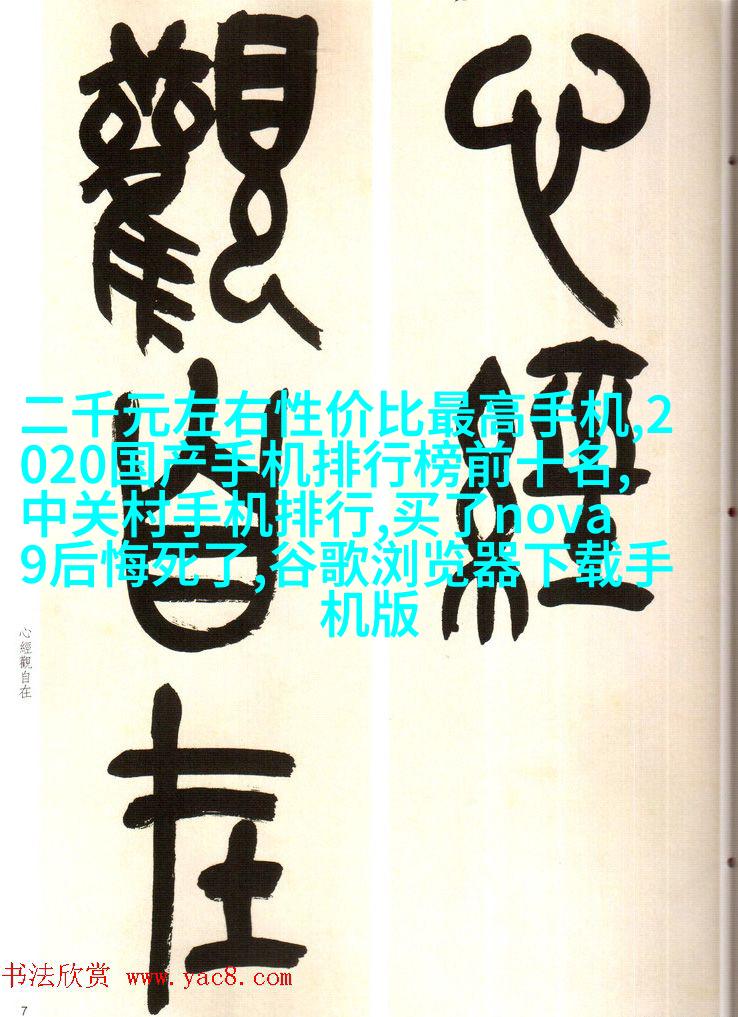 心經
觀自在
二千元左右性价比最高手机,2
020国产手机排行榜前十名,
中关村手机排行,买了nova
9后悔死了,谷歌浏览器下载手
机版
心經觀自在
书法欣赏 www.yac8.com
7